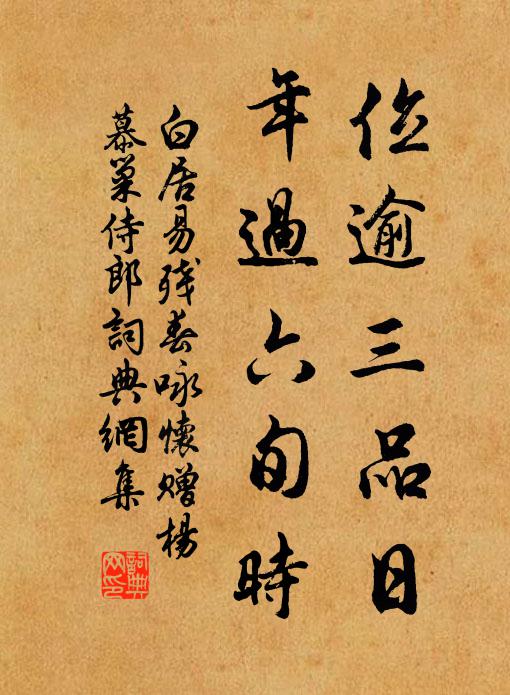 位逾三品日
年過六旬時
白居易殘春咏懷贈楊
慕巢侍郎詞典網集
詞典网印